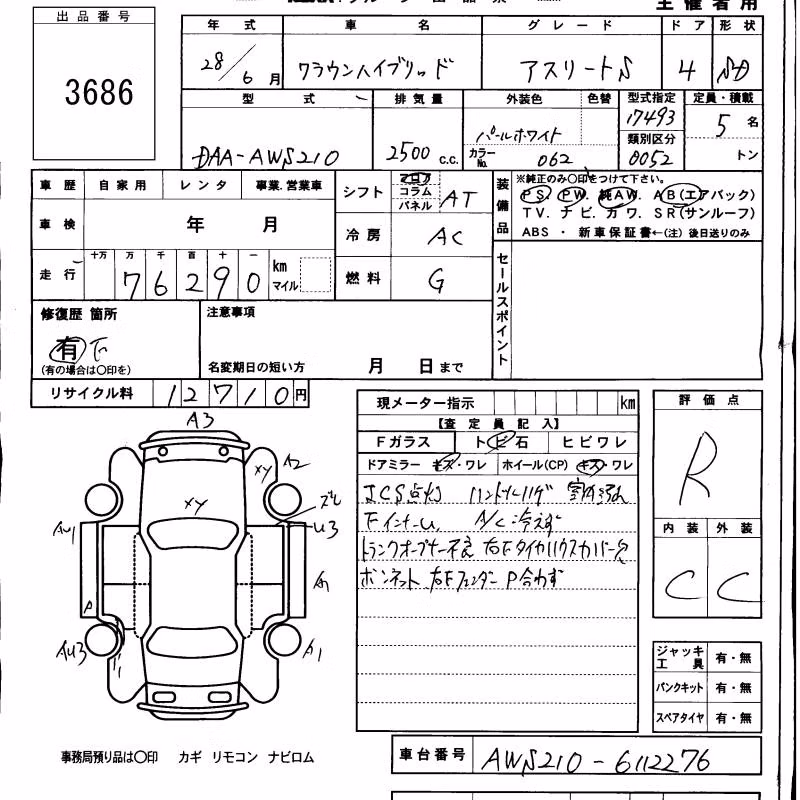 主催者用
出品番号
3686
年式 車名 グレード ドア 形状
28/6月 クラウンハイブリッド アスリートS 4 SD
型式 排気量 外装色 色替 型式指定 定員・積載
DAA-AWS210 2500 c.c. パールホワイト 17493 5名
カラーNo. 062 類別区分 0052 トン
車歴 自家用 レンタ 事業.営業車
シフト フロア コラム パネル AT
装備品 ※純正のみ〇印をつけて下さい。
PS. PW. 純AW. AB(エアバック)
TV. ナビ. カワ. SR(サンルーフ)
ABS・新車保証書←(注)後日送りのみ
車検 年 月
冷房 AC
走行 十万 万 千 百 十 一
76290 km マイル
燃料 G
セールスポイント
修復歴 箇所
有
(有の場合は〇印を)
注意事項
名変期日の短い方 月 日まで
リサイクル料 12710円
現メーター指示 km
【査定員記入】
Fガラス トビ石 ヒビワレ
ドアミラー キズ・ワレ ホイール(CP) キズ・ワレ
点灯
Fインナーし A/C冷えず
トランクオープナー不良 右Fタイヤハウスカバー欠
ボンネット 右Fフェンダー P合わず
評価点
R
内装 外装
C C
A3
XY A2
XY
ズレ
U3
AU1
A
P
AU3
A1
ジャッキ工具 有・無
パンクキット 有・無
スペアタイヤ 有・無
事務局預り品は〇印 カギ リモコン ナビロム
車台番号 AWS210-6112276